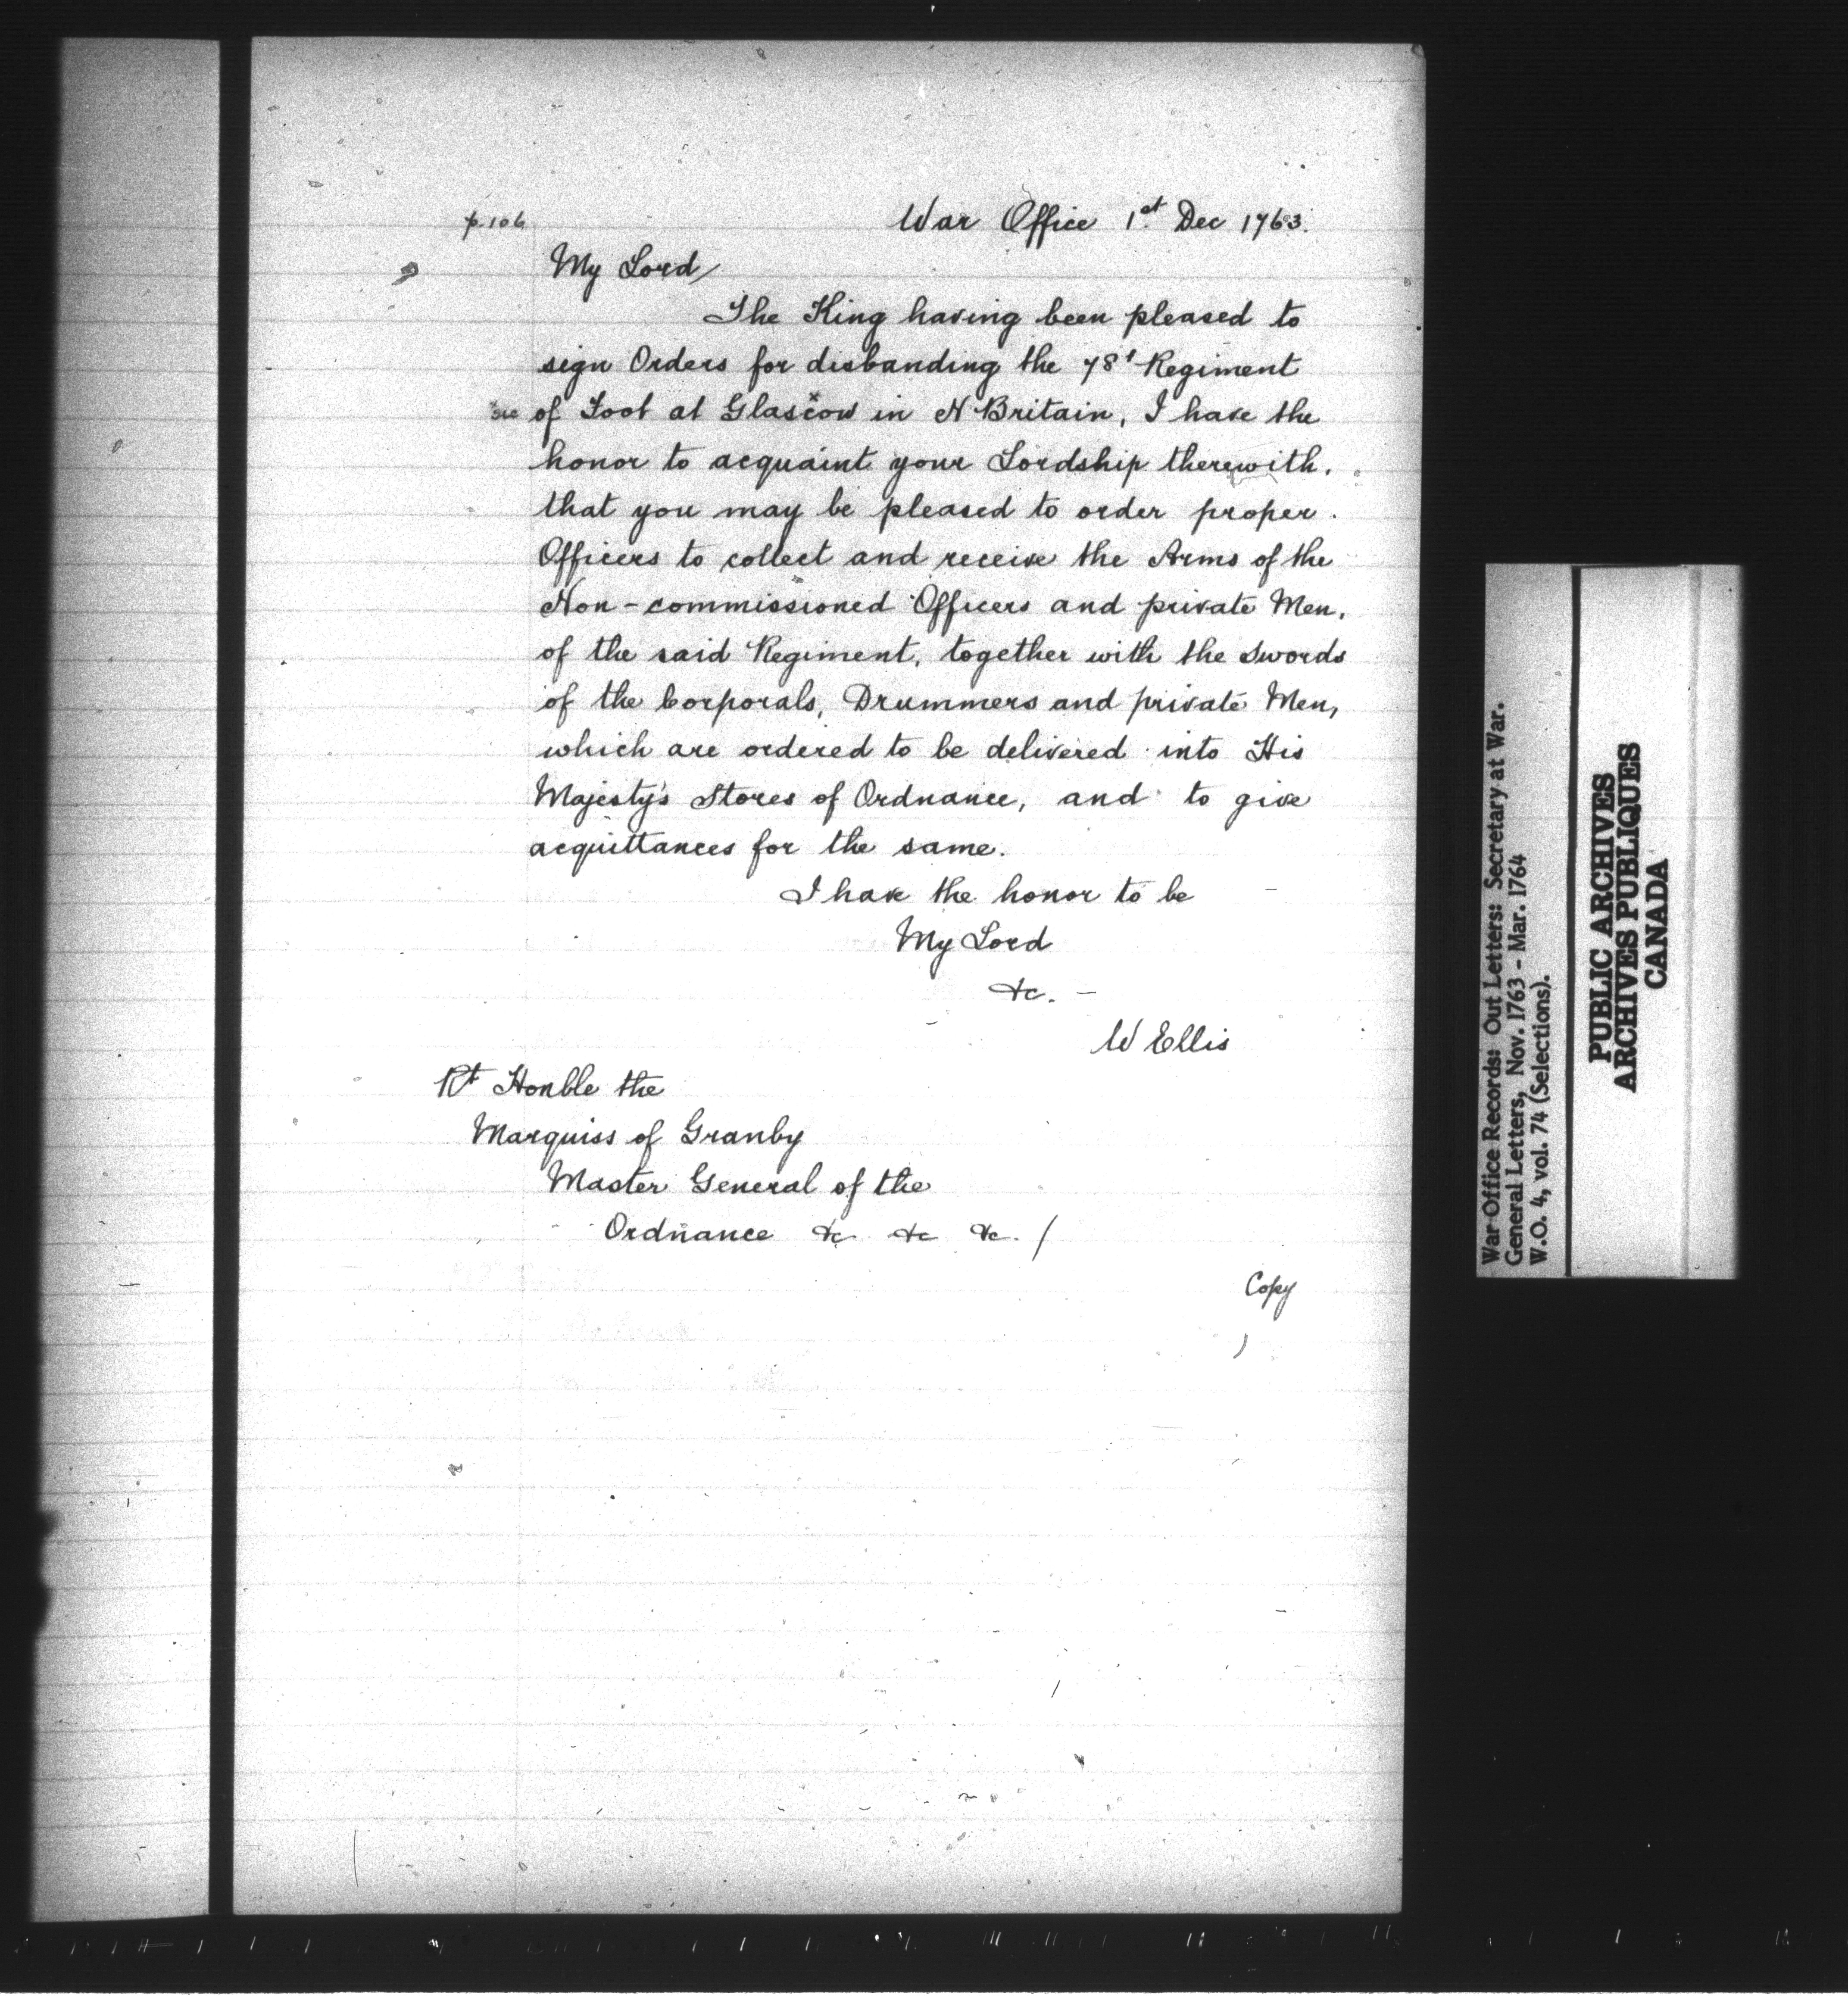 p.106
War Office 1st Dec 1763.
My Lord,
The King having been pleased to
sign Orders for disbanding the 78th Regiment
sic of Foot at Glascow in N Britain, I have the
honor to acquaint your Lordship therewith,
that you may be pleased to order proper
Officers to collect and receive the Arms of the
Non-commissioned Officers and private Men,
of the said Regiment, together with the Swords
of the Corporals, Drummers and private Men,
which are ordered to be delivered into His
Majesty's Stores of Ordnance, and to give
acquittances for the same.
I have the honor to be
My Lord
&c. -
W Ellis
Rt Honble the
Marquiss of Granby
Master General of the
Ordnance &c &c &c. /
Copy
War Office Records: Out Letters: Secretary at War.
General Letters, Nov. 1763 - Mar. 1764
W.O. 4, vol. 74 (Selections).
PUBLIC ARCHIVES
ARCHIVES PUBLIQUES
CANADA